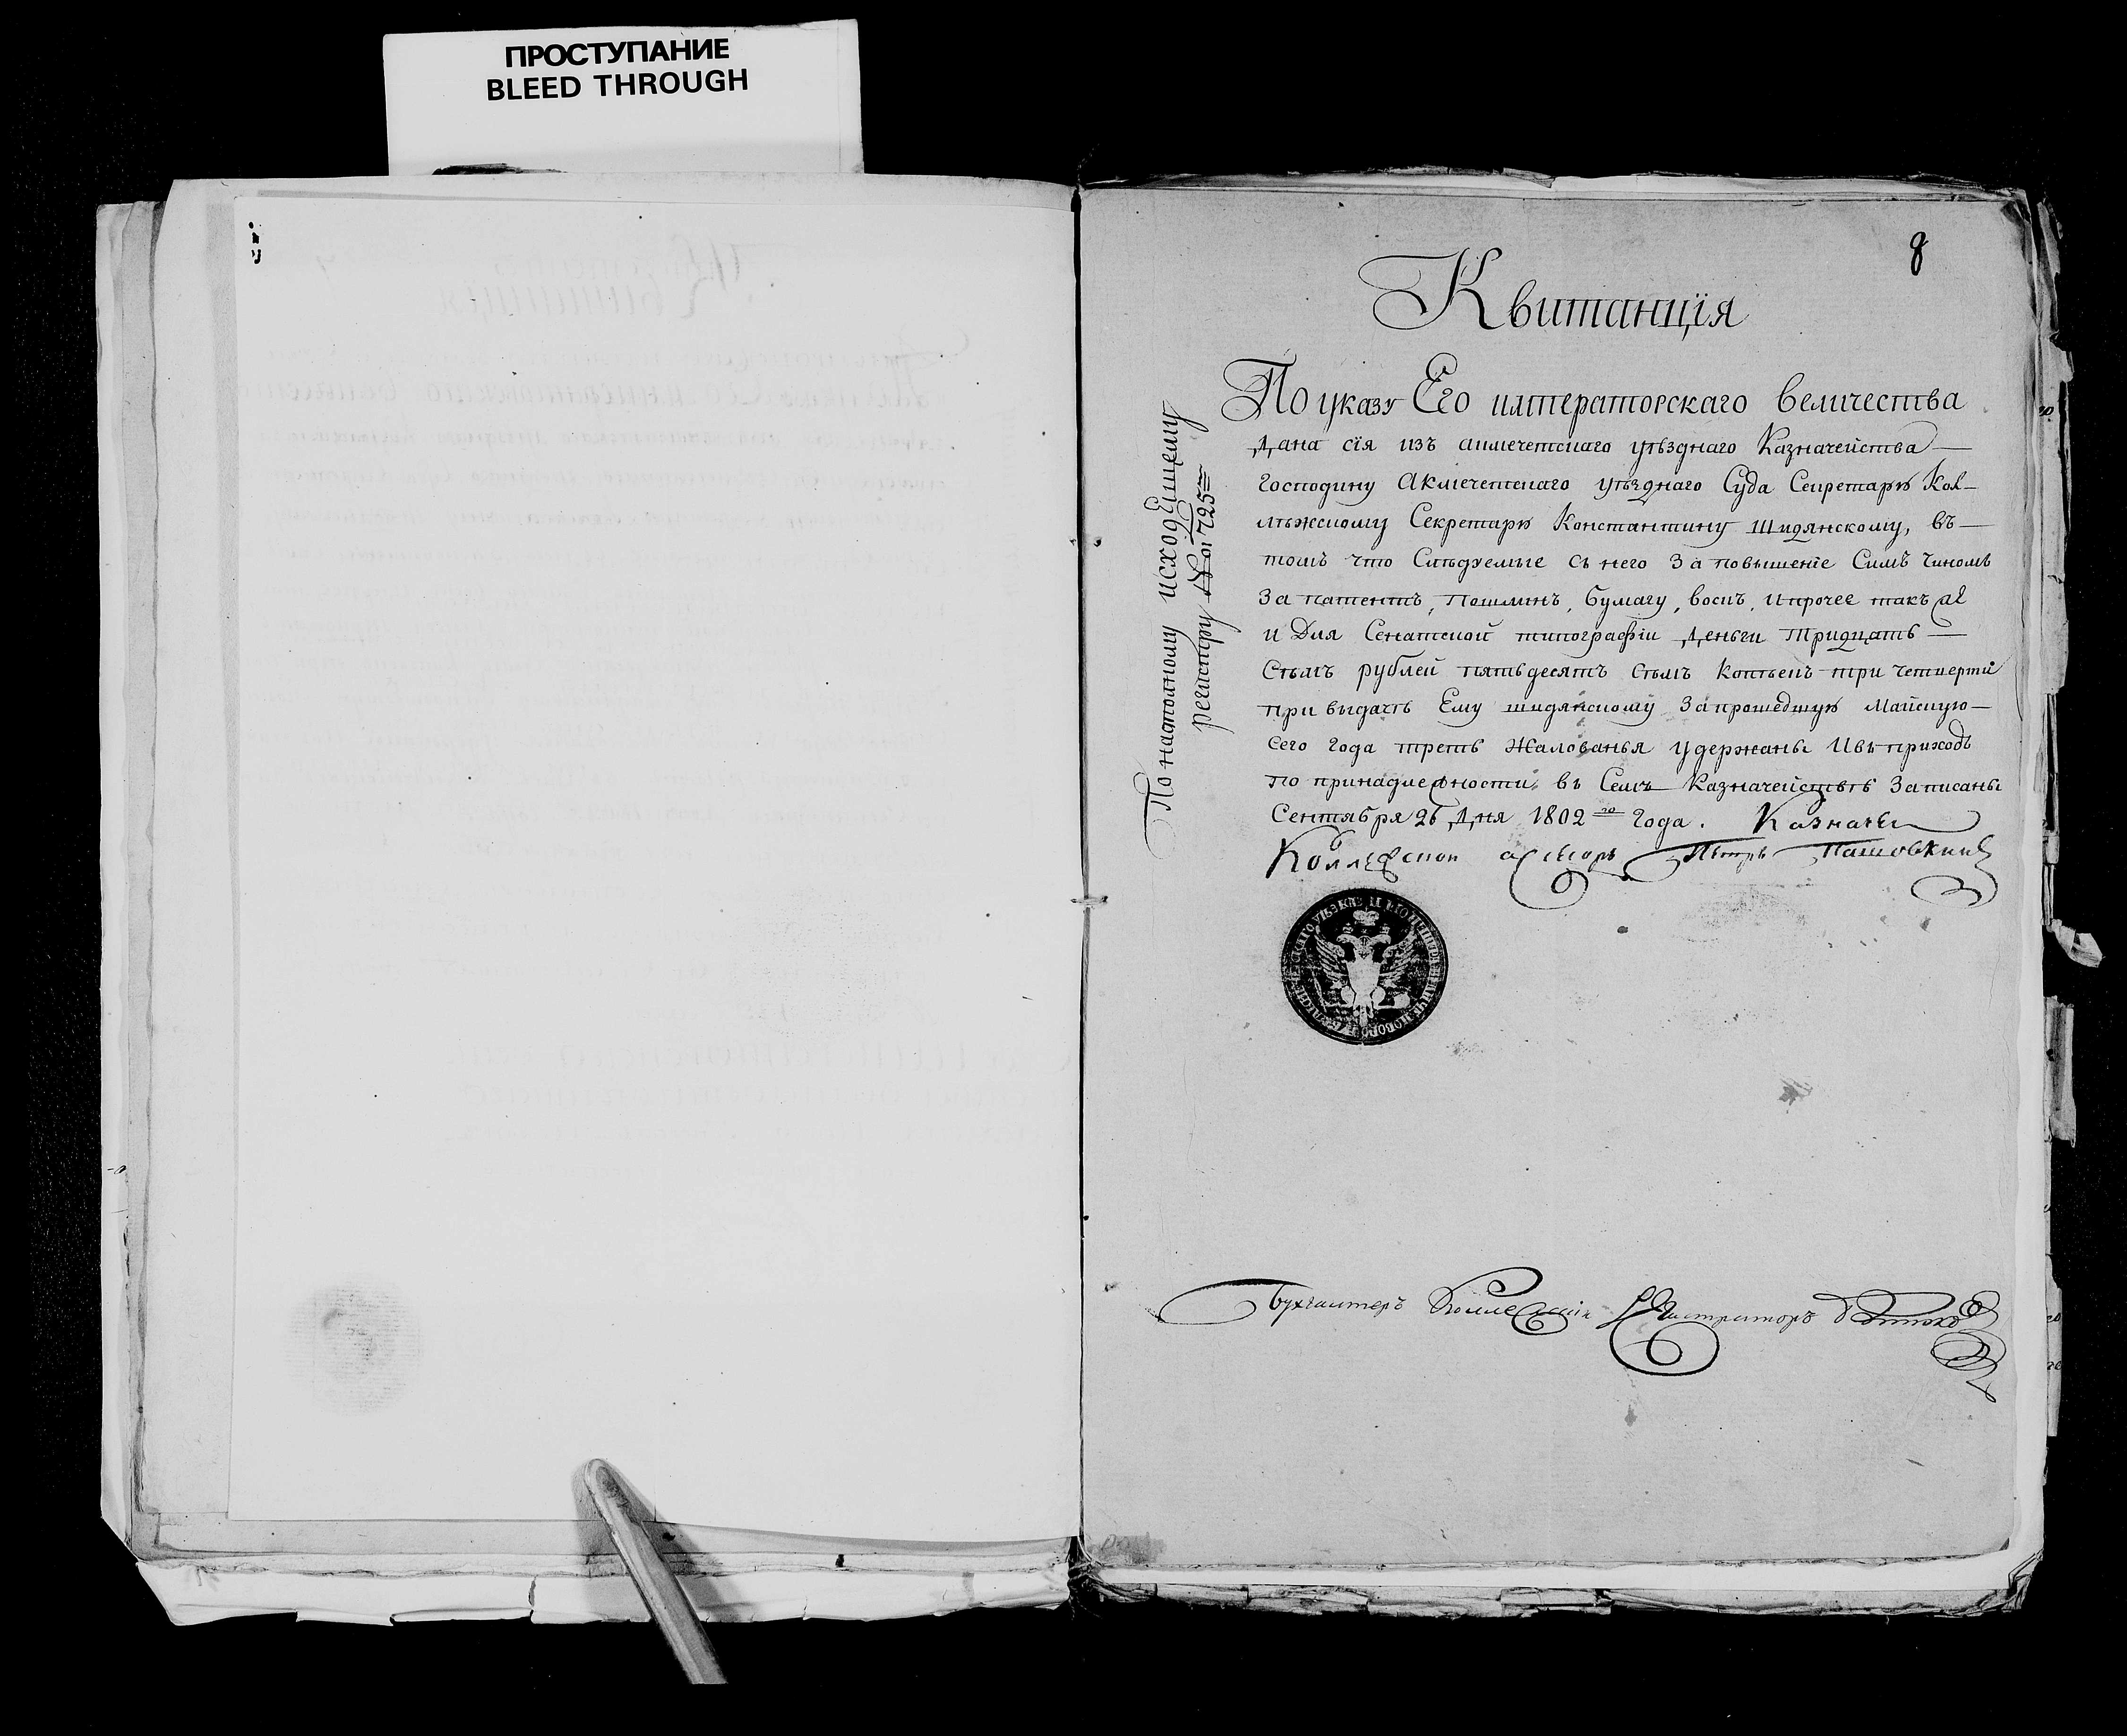 ПРОСТУПАНИЕ
BLEED THROUGH
8
Квитанцїя
По указу Его императорскаго величества
Дана сїя изъ акмечетскаго уѣзднаго Казначейства —
Господину Акмечетскаго уѣзднаго Суда Секретарю Кол-
лѣжскому Секретарю Константину Шидянскому, въ —
томъ что Слѣдуемые съ него За повышенїе Симъ чиномъ
За патентъ, Пошлинъ, бумагу, воскъ, ипрочее такъ же
и Для Сенатской типографїи Деньги тридцать —
Сѣмъ рублей пятьдесятъ сѣмъ копѣекъ три четверти
при выдачѣ Ему шидянскому За прошедшую Майскую —
сего года треть Жалованья удержаны Ивъ приходъ
по принадлежности въ Семъ Казначействѣ Записаны
Сентября 26 Дня 1802 го года. Казначеи
Коллежскои асесоръ Петръ
По настолному исходящему
регистру № 725
Бухгалтеръ Коллежскїи Регистраторъ